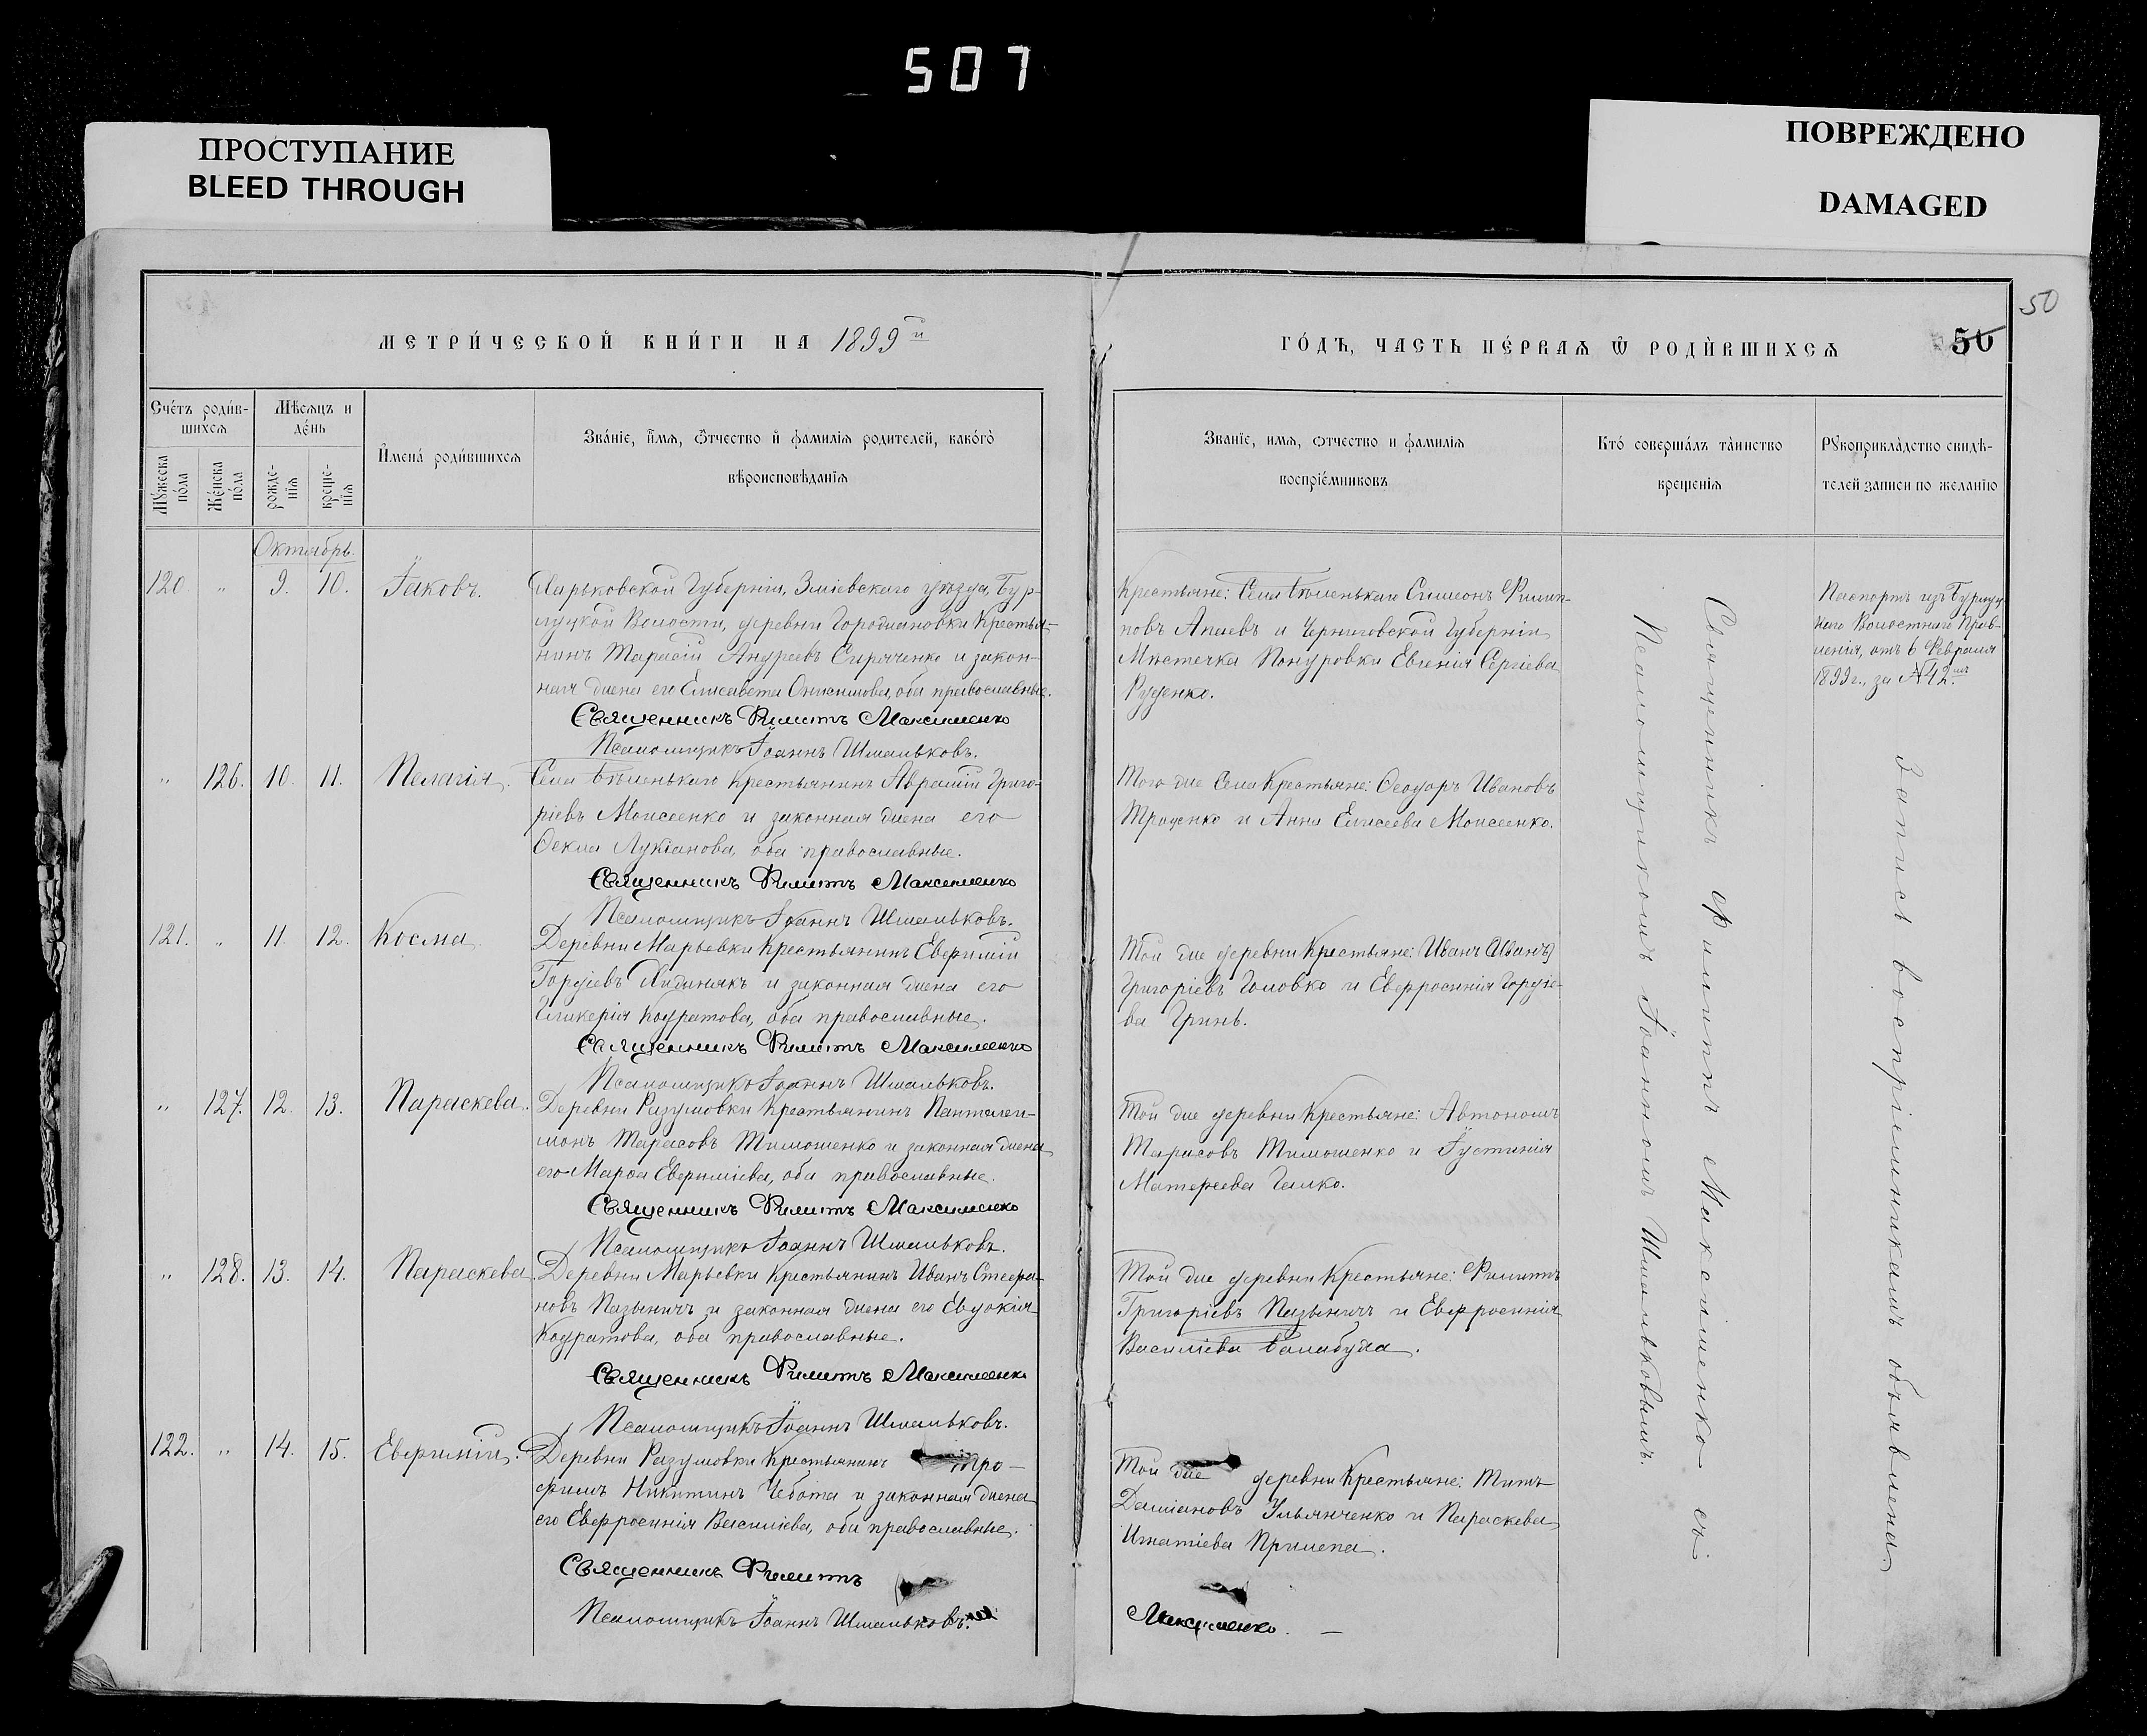 507
ПРОСТУПАНИЕ
BLEED THROUGH
ПОВРЕЖДЕНО
DAMAGED
50
МЕТРИ́ЧЕСКОЙ КНИ́ГИ НА 1899й
ГО́ДЪ, ЧАСТЬ ПЕ́РВАѦ Ѿ РОДИ́ВШИХСѦ
50
Сче́тъ роди́в-
шихсѧ
Мѣ́сѧцъ и
де́нь
Имена́ роди́вшихсѧ
Зва́нїе, и́мѧ, ѻ́тчество и фами́лїѧ роди́телей, како́гѡ
вѣроисповѣ́данїѧ
Мꙋ́жеска
по́ла
Же́нска
по́ла
рожде-
нїѧ
креще-
нїѧ
Званїе, имѧ, ѻтчество и фамилїѧ
воспрїе́мниковъ
Кто́ соверша́лъ та́инство
крещенїѧ
Рꙋкоприкла́дство свидѣ-
телей записи по желанїю
Октябрь.
120. " 9. 10. Іаковъ.
Харьковской Губерніи, Зміевскаго уѣзда, Бур-
луцкой Волости, деревни Городнановки Крестья-
нинъ Тарасій Андреевъ Сиряченко и закон-
ная жена его Елисавета Онисимова, оба православные.
Священникъ Филиппъ Максименко
Псаломщикъ Іоаннъ Шмальковъ.
Крестьяне: Села Бѣленькаго Симеонъ Филип-
повъ Апаевъ и Черниговской Губерніи
Мѣстечка Понуровки Евгенія Сергіева
Руденко.
Паспортъ изъ Бурлуц-
каго Волостнаго Прав-
ленія, отъ 6 Февраля
1899 г., за № 42.мъ
" 126. 10. 11. Пелагія.
Села Бѣленькаго Крестьянинъ Аврамій Григо-
ріевъ Моисеенко и законная жена его
Ѳекла Лукіанова, оба православные.
Священникъ Филиппъ Максименко
Псаломщикъ Іоаннъ Шмальковъ.
Того же Села Крестьяне: Ѳеодоръ Ивановъ
Троценко и Анна Елисеева Моисеенко.
121. " 11. 12. Косма.
Деревни Марьевки Крестьянинъ Евфимій
Гордіевъ Хидинякъ и законная жена его
Гликерія Кодратова, оба православные.
Священникъ Филиппъ Максименко
Псаломщикъ Іоаннъ Шмальковъ.
Той же деревни Крестьяне: Иванъ (Иванъ)
Григоріевъ Головко и Евфросинія Гордіе-
ва Гринь.
" 127. 12. 13. Параскева.
Деревни Разумовки Крестьянинъ Пантелеи-
монъ Тарасовъ Тимошенко и законная жена
его Марѳа Евфиміева, оба православные.
Священникъ Филиппъ Максименко
Псаломщикъ Іоаннъ Шмальковъ.
Той же деревни Крестьяне: Автономъ
Тарасовъ Тимошенко и Іустинія
Матфеева Галко.
" 128. 13. 14. Параскева.
Деревни Марьевки Крестьянинъ Иванъ Стефа-
новъ Пазыничъ и законная жена его Евдокія
Кодратова, оба православные.
Священникъ Филиппъ Максименко
Псаломщикъ Іоаннъ Шмальковъ.
Той же деревни Крестьяне: Филиппъ
Григоріевъ Пазыничъ и Евфросинія
Василіева Балабуха.
122. " 14. 15. Евфимій.
Деревни Разумовки Крестьянинъ Тро-
фимъ Никитинъ Чебота и законная жена
его Евфросинія Василіева, оба православные.
Священникъ Филиппъ
Псаломщикъ Іоаннъ Шмальковъ.
Той же деревни Крестьяне: Титъ
Даміановъ Ульянченко и Параскева
Игнатіева Прилепа.
Максименко. —
Священникъ Филиппъ Максименко съ
Псаломщикомъ Іоанномъ Шмальковымъ.
Запись воспріемникамъ объявлена.